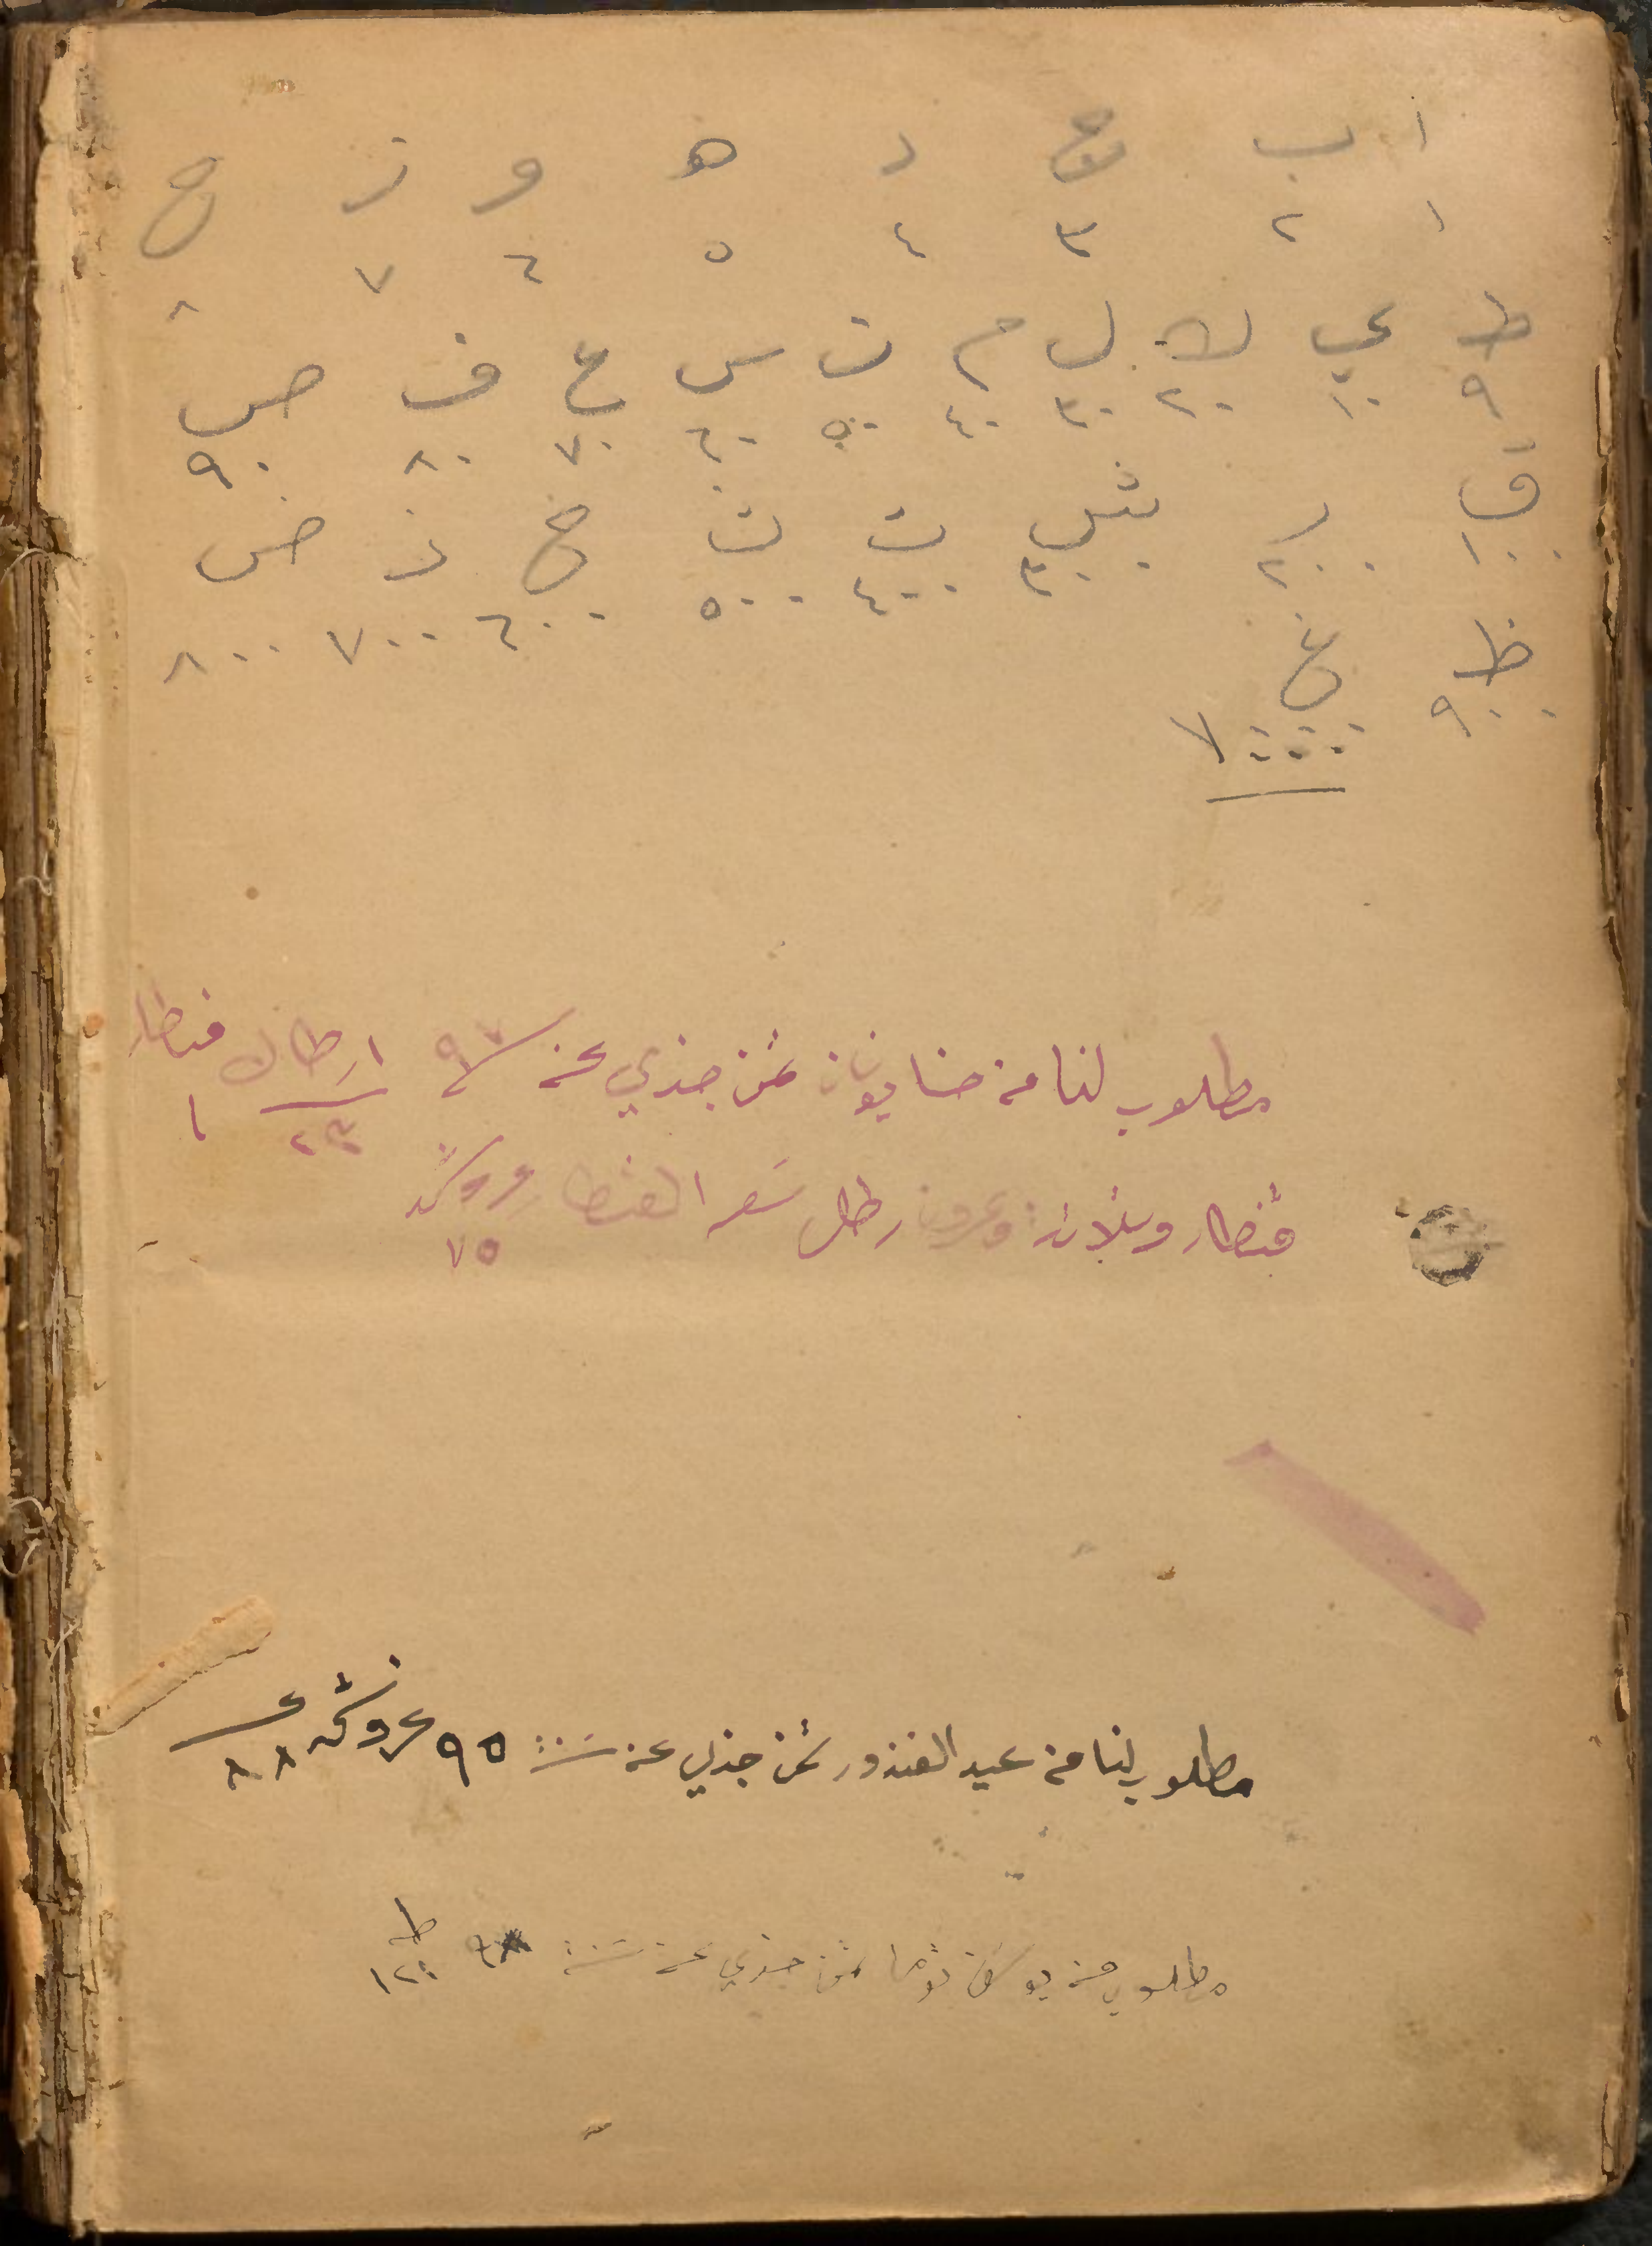 ا ب ج د ه و ز ح
١ ٢ ٣ ٤ ٥ ٦ ٧ ٨
ط ي ك ل م ن س ع ف ص
٩ ١٠ ٢٠ ٣٠ ٤٠ ٥٠ ٦٠ ٧٠ ٨٠ ٩٠
ق ر ش ت ث خ ذ ض
١٠٠ ٢٠٠ ٣٠٠ ٤٠٠ ٥٠٠ ٦٠٠ ٧٠٠ ٨٠٠
ظ غ
٩٠٠ ١٠٠٠
مطلوب لنا من حنا يونان ثمن جذي عن سنة ٩٧ ارطال قنطار
٢٣ ١
قنطار وثلاثة وعشرون رطل سعر القنطار غروش
٧٥
مطلوب لنا من عيد الغندور ثمن جذي عن سنة ٩٥ غروش
٨٨
مطلوب من ثمن جذي عن سنة ط
١٢٠